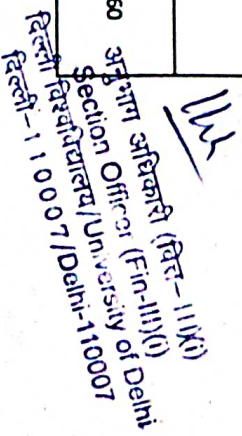 60
अनुभाग अधिकारी (वित्त-III)(i)
Section Officer (Fin-III)(i)
दिल्ली विश्वविद्यालय/University of Delhi
दिल्ली-110007/Delhi-110007